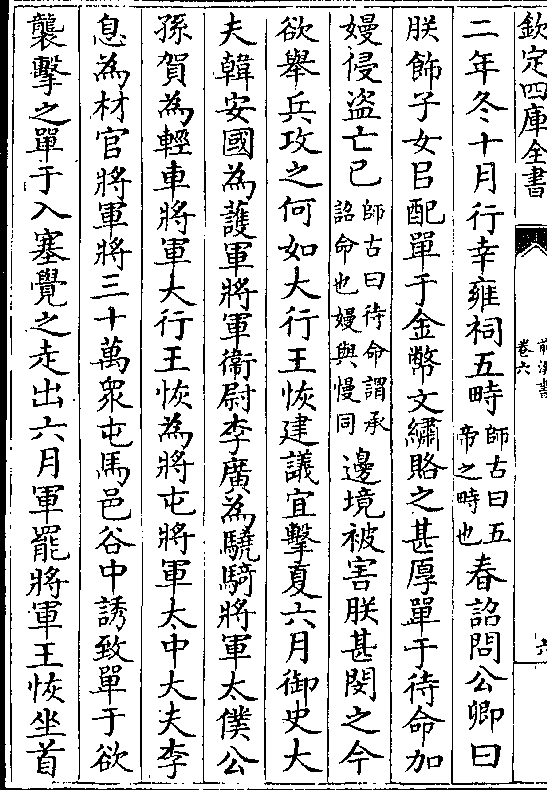 欽定四庫全書
前漢書
卷六
六
二年冬十月行幸雍祠五畤師古曰五帝之畤也春詔問公卿曰
朕飾子女㠯配單于金幣文繡賂之甚厚單于待命加
嫚侵盗亡已師古曰待命謂承詔命也嫚與慢同邊境被害朕甚閔之今
欲舉兵攻之何如大行王恢建議宜擊夏六月御史大
夫韓安國為護軍將軍衛尉李廣為驍騎將軍太僕公
孫賀為輕車將軍大行王恢為將屯將軍太中大夫李
息為材官將軍將三十萬衆屯馬邑谷中誘致單于欲
襲擊之單于入塞覺之走出六月軍罷將軍王恢坐首